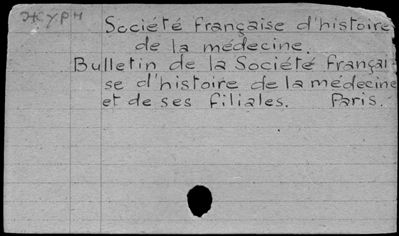 Журн
Société française d'histoire
de la médecine.
Bulletin de la Société françai
se d'histoire de la médecine
et de ses filiales. Paris.